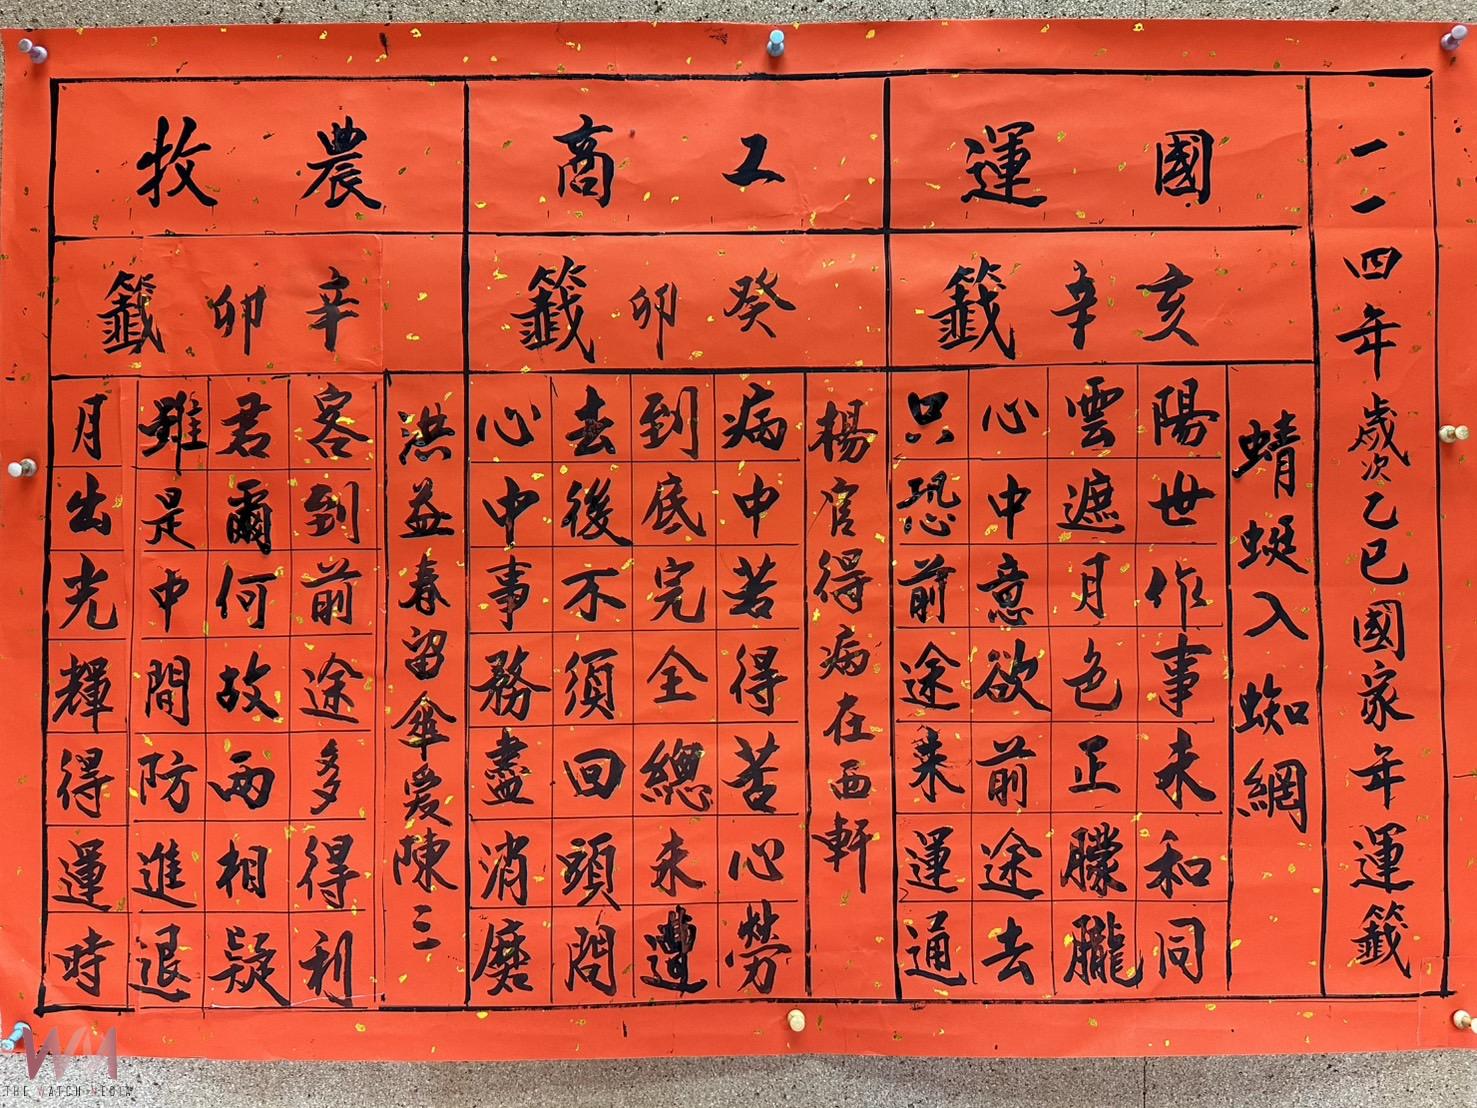 一一四年歲次乙巳國家年運籤
國運
亥辛籤
蜻蜓入蜘網
陽世作事未和同
雲遮月色正朦朧
心中意欲前途去
只恐前途来運通
工商
癸卯籤
楊官得病在西軒
病中若得苦心勞
到底完全總未遭
去後不須回頭問
心中事務盡消磨
農牧
辛卯籤
洪益春留傘爱陳三
客到前途多得利
君爾何故兩相疑
雖是中間防進退
月出光輝得運時
WM
THE WATCH MEDIA